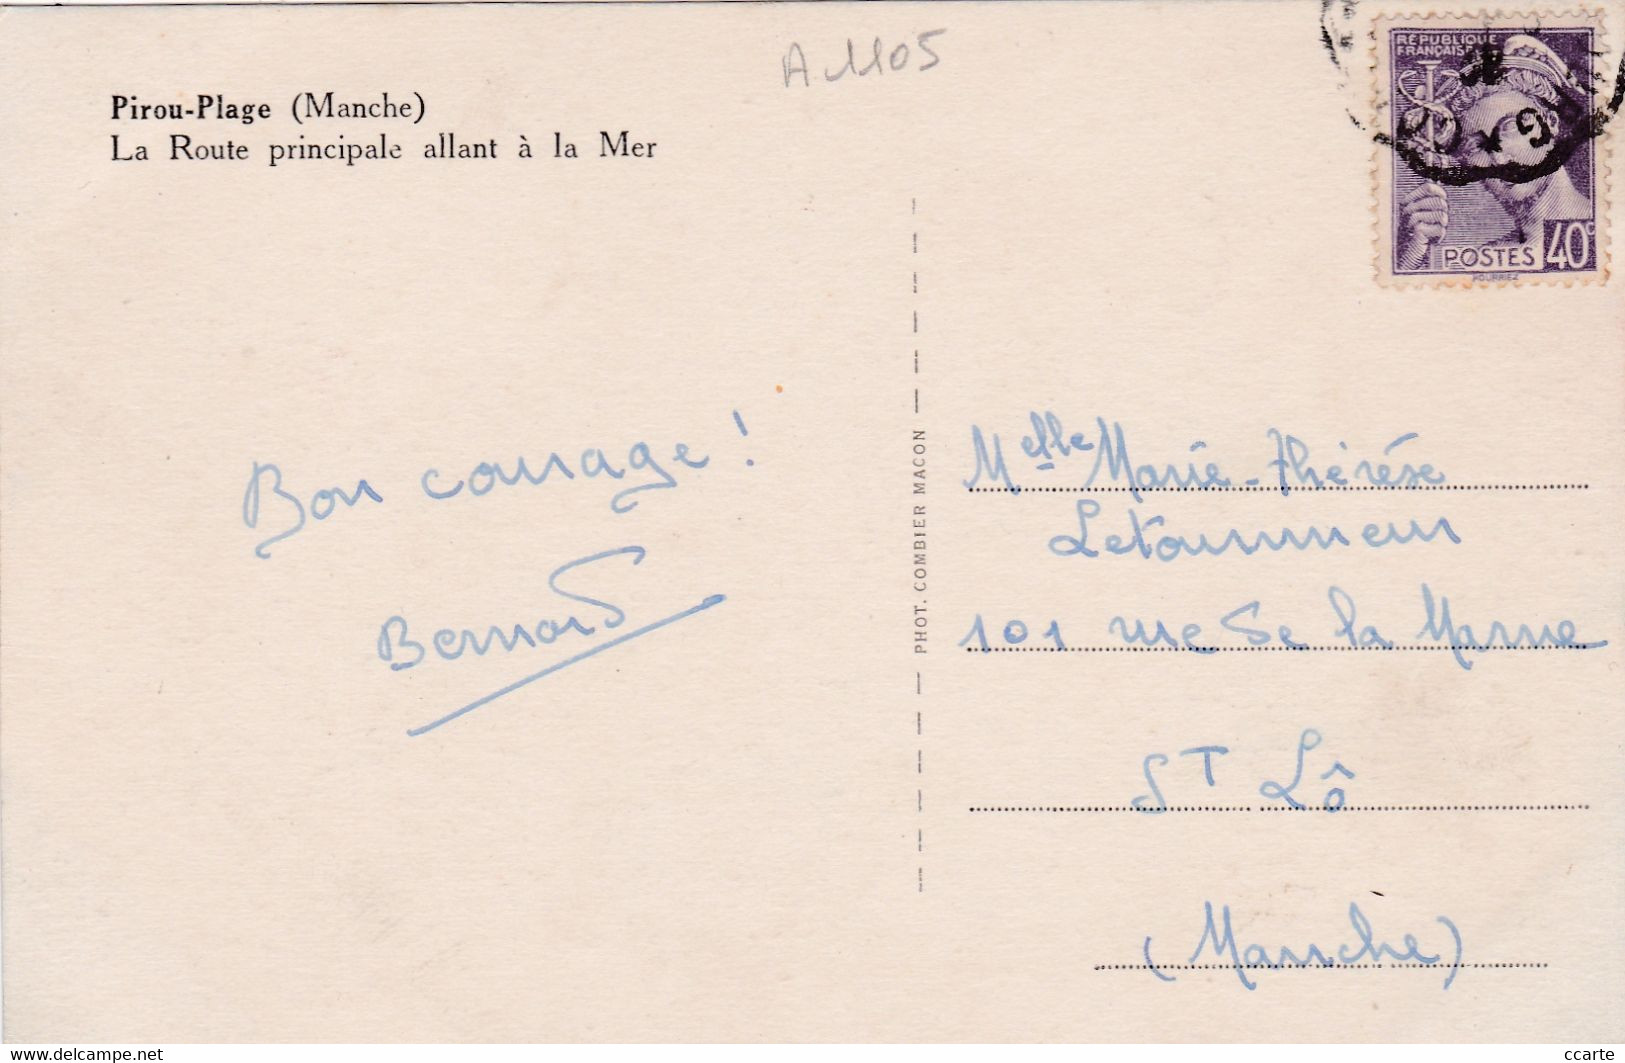 A 1105
Pirou-Plage (Manche)
La Route principale allant à la Mer
RÉPUBLIQUE
FRANÇAISE
POSTES 40c
POURRIEZ
Bon courage !
Bernard
PHOT. COMBIER MACON
Melle Marie-Thérèse
Letourneur
101 rue de la Marne
ST Lô
(Manche)
www.delcampe.net
ccarte